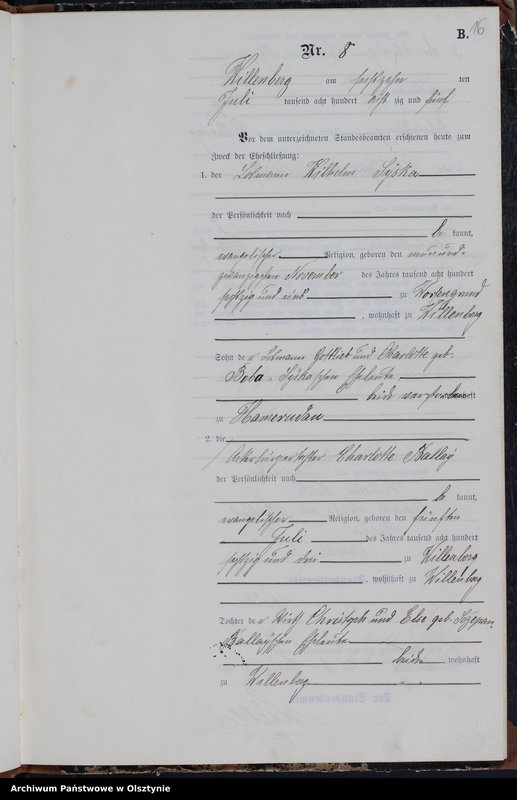 B. 16
Nr. 8
Willenberg am sechszehn ten
Juli tausend acht hundert acht zig und fünf.
Vor dem unterzeichneten Standesbeamten erschienen heute zum
Zweck der Eheschließung:
1. der Losmann Wilhelm Syska
der Persönlichkeit nach
be kannt,
evangelischer Religion, geboren den neunund-
zwanzigsten November des Jahres tausend acht hundert
sechzig und eins zu
, wohnhaft zu Willenberg
Sohn de r Losmann Gottlieb und Charlotte geb.
Boba-Syska'schen Eheleute
beide verstorben haft
zu
2. die
Ackerbürgertochter Charlotte Ballay
der Persönlichkeit nach
be kannt,
evangelischer Religion, geboren den fünften
Juli des Jahres tausend acht hundert
sechzig und drei zu Willenberg
, wohnhaft zu Willenberg
Tochter de r Wirth Christoph und Else geb. Sczepan-
Ballay'schen Eheleute
beide wohnhaft
zu Willenberg
Archiwum Państwowe w Olsztynie